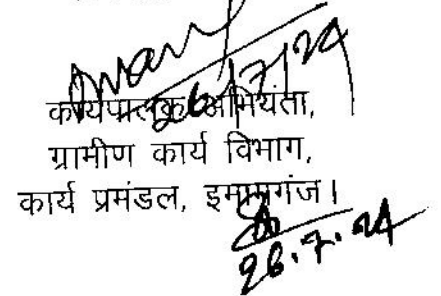 26/7/24
कार्यपालक अभियंता,
ग्रामीण कार्य विभाग,
कार्य प्रमंडल, इमामगंज।
26.7.24